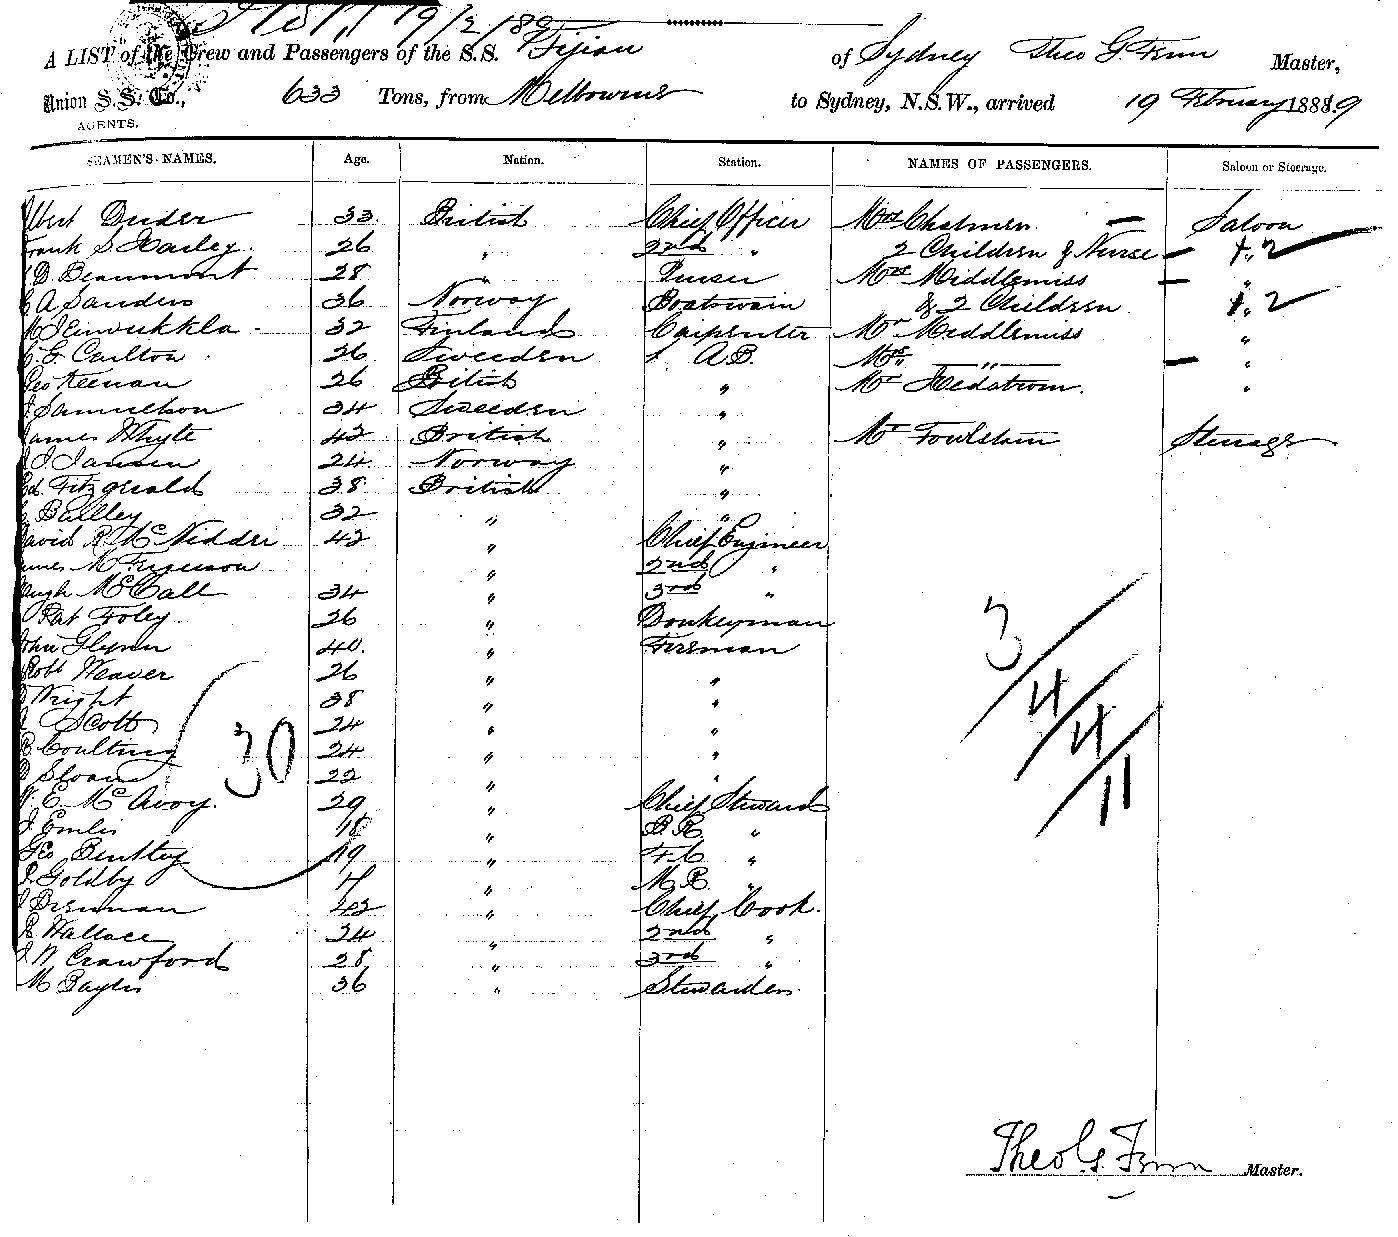 19/2/89
A LIST of the Crew and Passengers of the S.S. Fijian of Sydney Theo G. Fenn Master,
Union S.S. Co., 633 Tons, from Melbourne to Sydney, N.S.W., arrived 19 February 1889
AGENTS.
SEAMEN'S NAMES. Age. Nation. Station. NAMES OF PASSENGERS. Saloon or Steerage.
Albert Duder 33 British Chief Officer Mrs Chalmers — Saloon
Frank S Harley 26 " 2nd " 2 Children & Nurse — " 2
D. Beaumont 28 " Purser Mrs Middlemiss — "
A Sanders 36 Norway Boatswain & 2 Children " 2
32 Finland Carpenter Mr Middlemiss "
G. Carlton 26 Sweeden A.B. Mrs " — "
Geo Keenan 26 British " Mr Hedstrom. "
Samuelson 34 Sweeden "
James Whyte 42 British " Mr Steerage
J Jansen 24 Norway "
Ed. Fitzgerald 38 British "
Bailey 32 " "
David R Mc Nidder 42 " Chief Engineer
James M Ferguson " 2nd "
Hugh McCall 34 " 3rd "
Pat Foley 26 " Donkeyman
John Glynn 40 " Fireman
Robt Weaver 26 " "
Wright 38 " "
Scott 24 " "
Coulting 24 " "
Sloan 22 " "
W. E. Mc Avoy. 29 " Chief Steward
J Emlis 18 " B.R. "
Geo Bentley 19 " F.C. "
Goldby " M.R. "
J Brennan 42 " Chief Cook.
R Wallace 24 " 2nd "
J W Crawford 28 " 3rd "
M Baylis 36 " Stewardess
30
3/4/4/11
Theo G. Fenn Master.